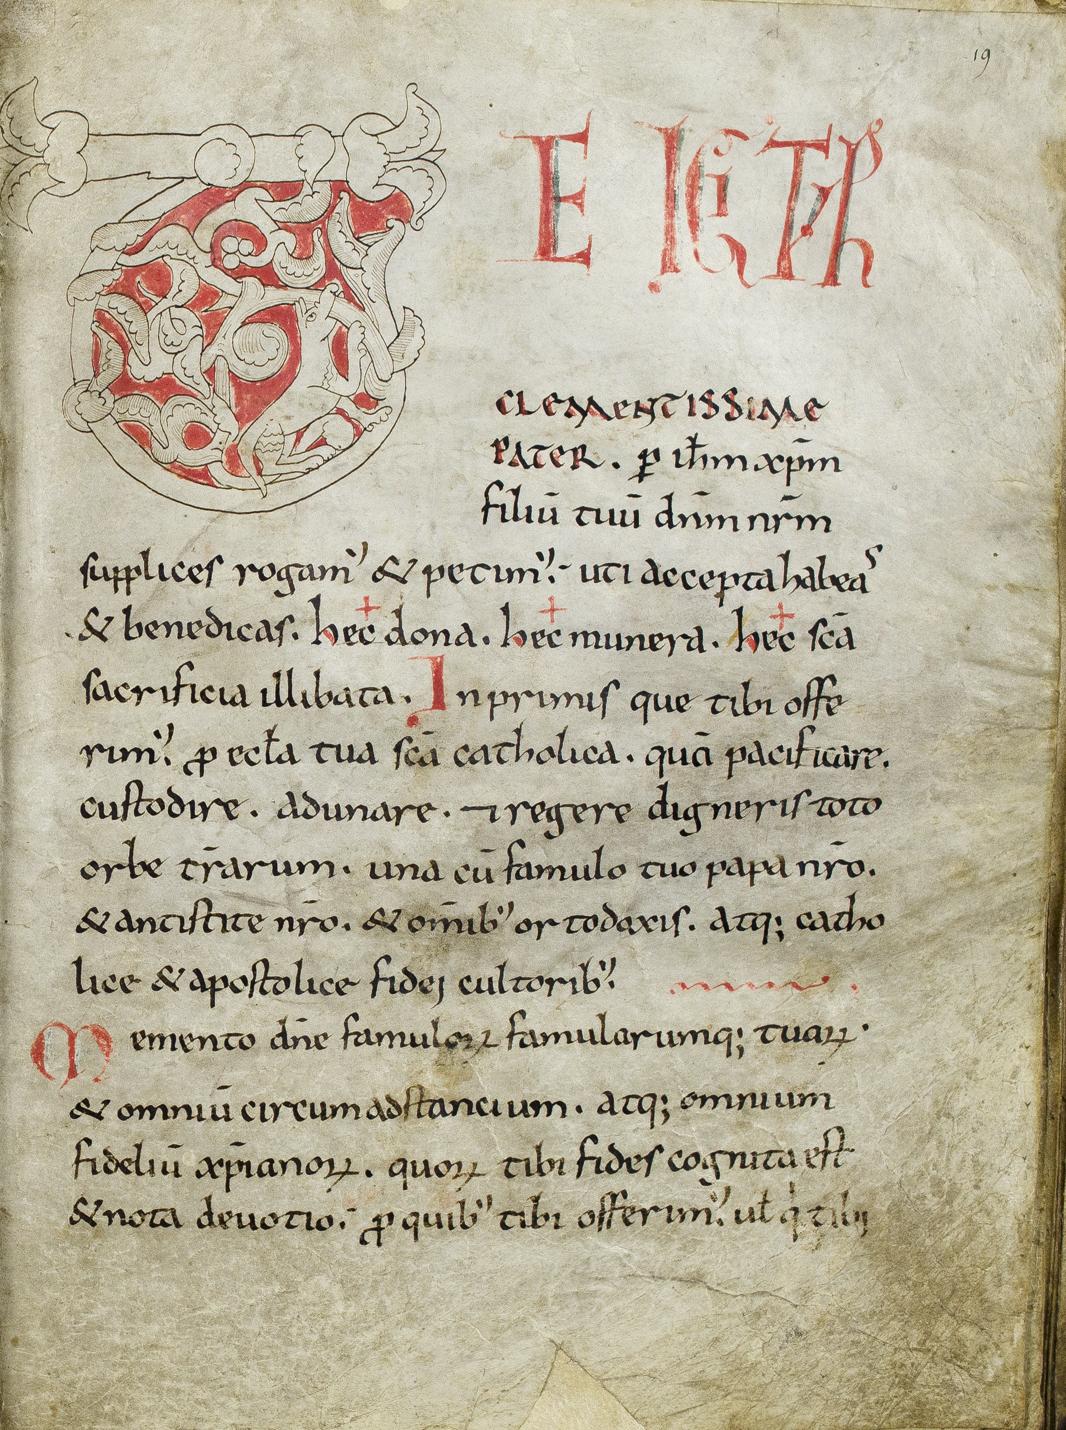 19
TE IGITR
CLEMENTISSIME
PATER. ꝑ ih̄m xp̄m
filiū tuū dn̄m nr̄m
supplices rogam᾽ & petim᾽: uti accepta habeas
& benedicas. hec̄ dona. hec̄ munera. hec̄ sc̄a
sacrificia illibata. Inprimis que tibi offe
rim᾽: ꝓ eccl̄a tua sc̄a catholica. quā pacificare.
custodire. adunare. ⁊ regere digneris toto
orbe tr̄arum. una cū famulo tuo papa nr̄o.
& antistite nr̄o. & om̄ib᾽ ortodoxis. atq; catho
lice & apostolice fidej cultorib᾽:
Memento dn̄e famuloꝝ famularumq; tuaꝝ.
& omniū circumadstancium. atq; omnium
fideliū xp̄ianoꝝ. quoꝝ tibi fides cognita est
& nota deuotio: ꝓ quib᾽ tibi offerim᾽: ul̄ q̇ tibj